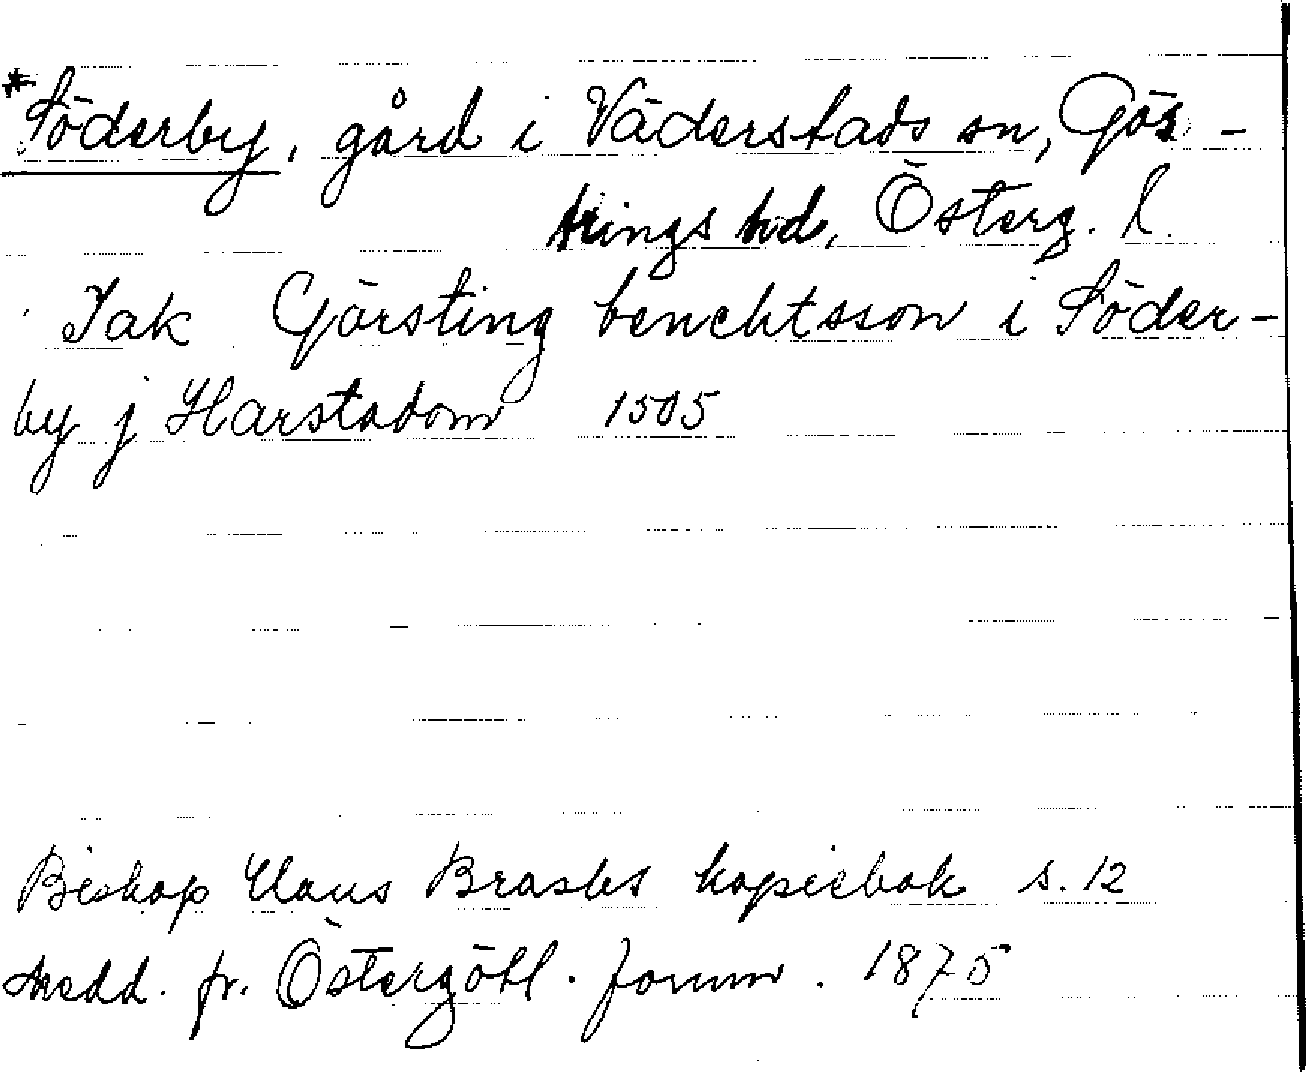 *Söderby, gård i Väderstads sn, Gös-
trings hd, Österg. l.
Jak Görsting benchtsson i Söder-
by j Harstadom 1505
Biskop Claus Brasks kopiebok s. 12
Medd. fr. Östergötl. fornm. 1875